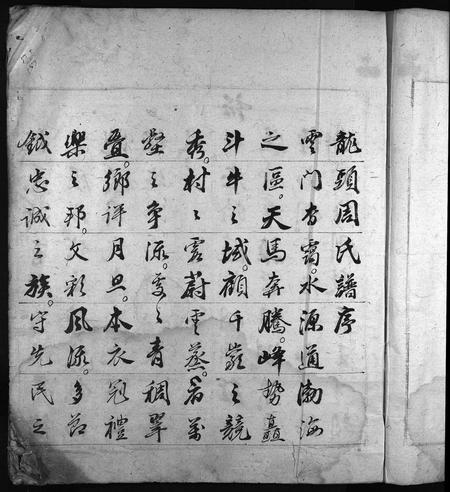 龍頭周氏譜序
雲門杳靄。水源道渤海
之區。天馬奔騰。峰勢矗
斗牛之域。顧千巖之競
秀。村〻霞蔚雲蒸。看萬
壑之爭流。處〻青稠翠
疊。鄉評月旦。本衣冠禮
樂之邦。文彩風流。多節
鉞忠誠之族。守先民之